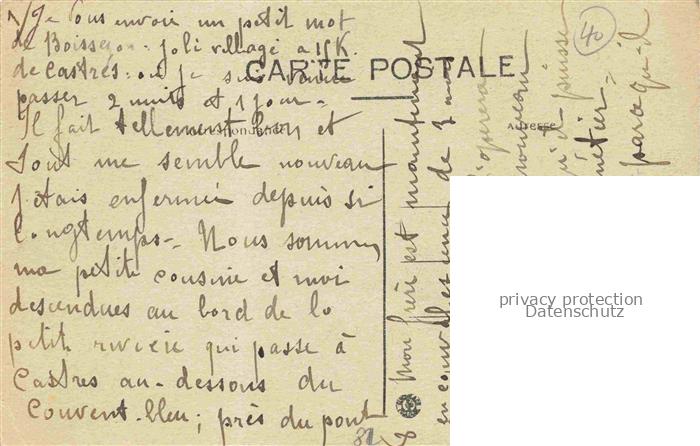 1/ Je vous envoie un petit mot
de Boissezon. joli village a 15 K.
de Castres. où je suis venue
passer 2 nuits et 1 jour.
CARTE POSTALE
Il fait tellement bon et
tout me semble nouveau
j'étais enfermée depuis si
longtemps. Nous sommes
ma petite cousine et moi
descendues au bord de la
petite rivière qui passe à
Castres au-dessous du
Couvent-bleu; près du pont
Adresse
40
Mon frère est maintenant
de 3
nouveau
qu'il puisse
métier.
parce qu'il
privacy protection
Datenschutz